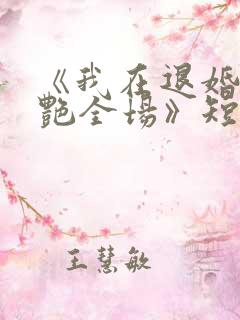 《我在退婚
艳全场》短
王慧敏